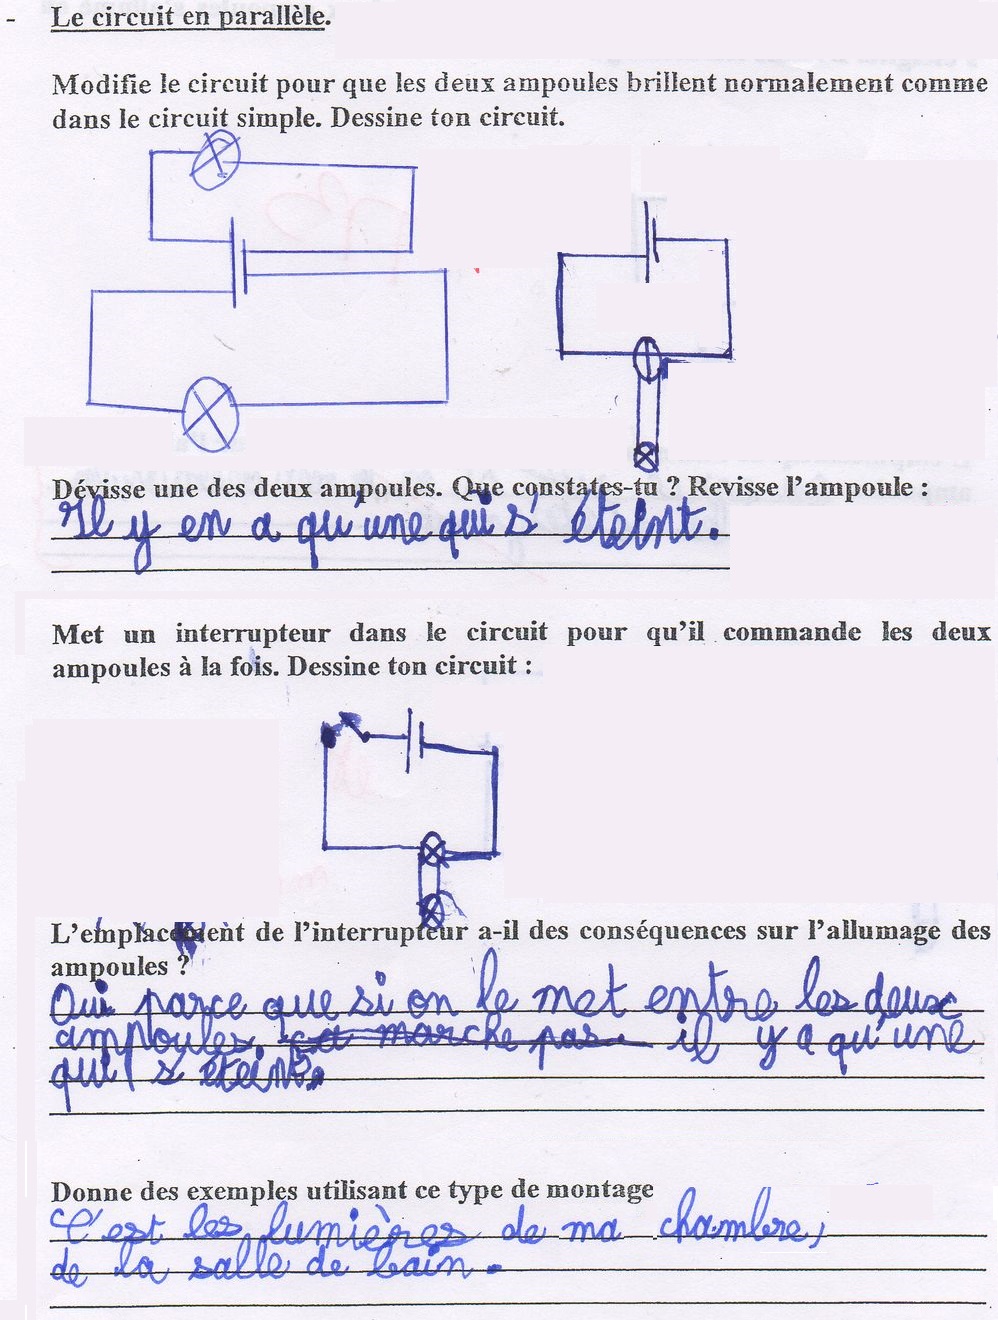 - Le circuit en parallèle.
Modifie le circuit pour que les deux ampoules brillent normalement comme
dans le circuit simple. Dessine ton circuit.
Dévisse une des deux ampoules. Que constates-tu ? Revisse l'ampoule :
Il y en a qu'une qui s'éteint.
Met un interrupteur dans le circuit pour qu'il commande les deux
ampoules à la fois. Dessine ton circuit :
L'emplacement de l'interrupteur a-il des conséquences sur l'allumage des
ampoules ?
Oui parce que si on le met entre les deux
ampoules, ça marche pas. il y a qu'une
qui s'éteint.
Donne des exemples utilisant ce type de montage
C'est les lumières de ma chambre,
de la salle de bain.